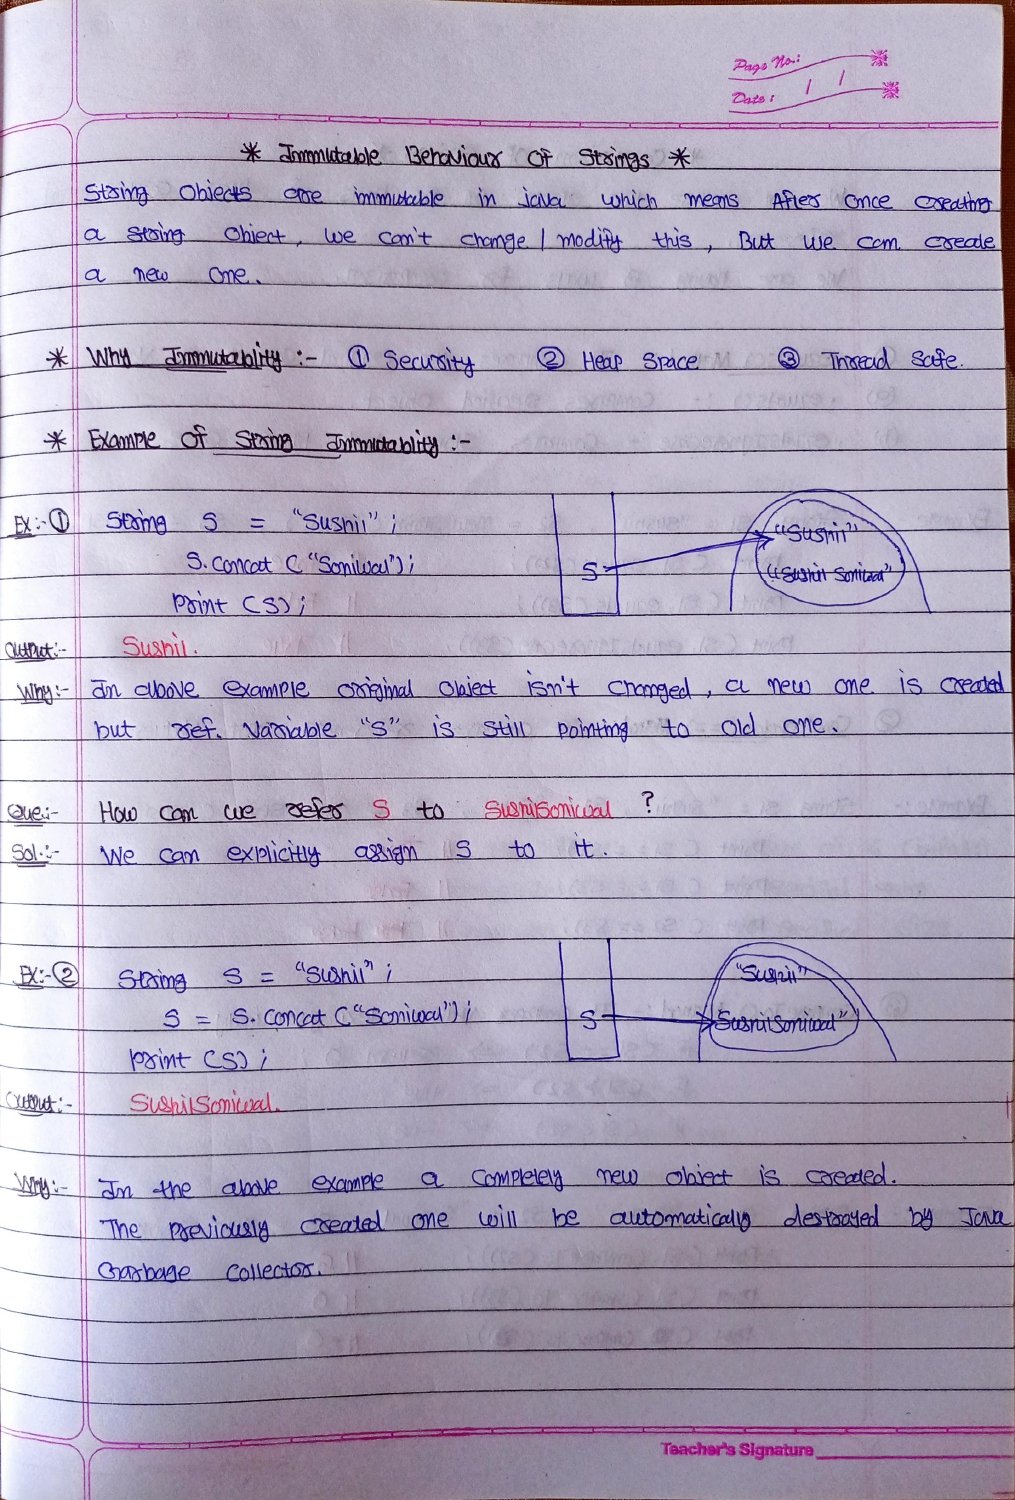 Page No.:
Date: / /
* Immutable Behaviour Of Strings *
String Objects are immutable in java which means After once creating
a string Object, we can't change / modify this, But we can create
a new One.
* Why Immutablity :- ① Security ② Heap Space ③ Thread Safe.
* Example Of String Immutablity :-
Ex:-① String S = "Sushil";
S.concat ("Soniwal");
print (S);
S
"Sushil"
"Sushil Soniwal"
Output:- Sushil.
Why:- In above example original Object isn't changed, a new one is created
but ref. Variable "S" is still pointing to old one.
Que:- How can we refer S to SushilSoniwal ?
Sol.:- We can explicitly assign S to it.
Ex:-② String S = "Sushil";
S = S.concat ("Soniwal");
print (S);
S
"Sushil"
SushilSoniwal"
Output:- SushilSoniwal.
Why:- In the above example a completely new object is created.
The previously created one will be automatically destroyed by Java
Garbage Collector.
Teacher's Signature